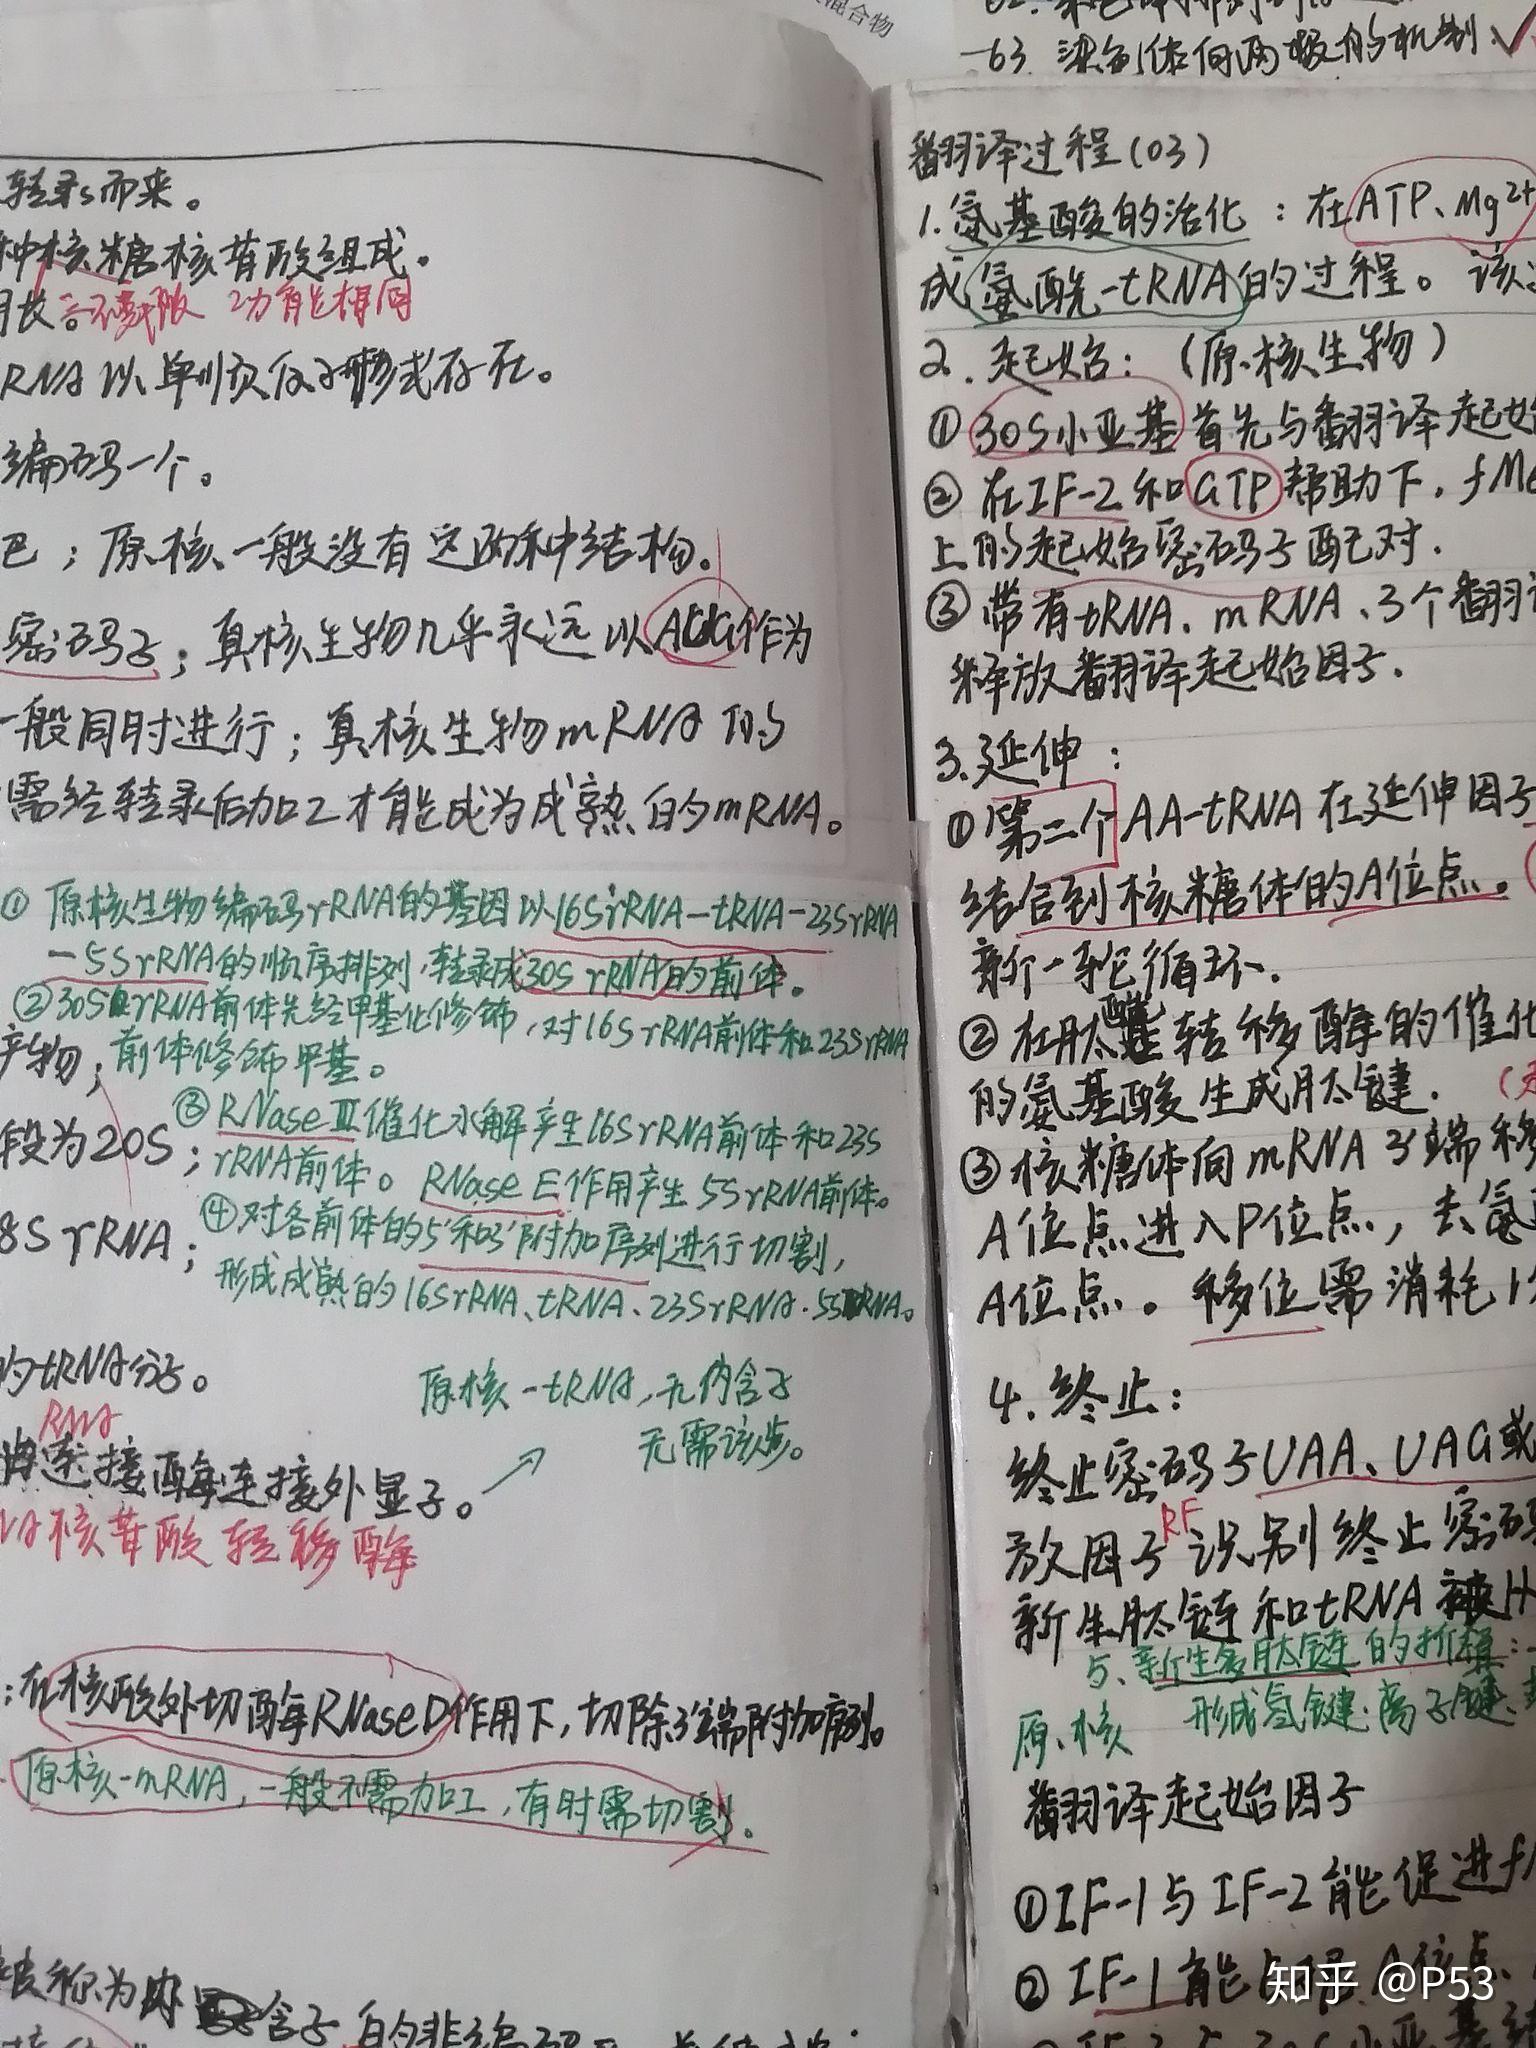 混合物
63. 染色体向两极的机制
转录而来。
种核糖核苷酸组成。
功能相同
RNA以单顺反子形式存在。
编码一个。
；原核一般没有这两种结构。
密码子；真核生物几乎永远以AUG作为
一般同时进行；真核生物mRNA的
需经转录后加工才能成为成熟的mRNA。
① 原核生物编码rRNA的基因以16SrRNA-tRNA-23SrRNA
-5SrRNA的顺序排列，转录成30S rRNA的前体。
②30S rRNA前体先经甲基化修饰，对16SrRNA前体和23SrRNA
产物；前体修饰甲基。
③ RNaseⅢ催化水解产生16SrRNA前体和23S
段为20S；rRNA前体。RNase E作用产生5SrRNA前体。
④对各前体的5'和3'附加序列进行切割，
8S rRNA；
形成成熟的16SrRNA、tRNA、23SrRNA、5SrRNA。
的tRNA分子。
原核-tRNA，无内含子
无需该步。
RNA
由连接酶连接外显子。
核苷酸转移酶
：在核酸外切酶RNase D作用下，切除3'端附加序列。
原核-mRNA，一般不需加工，有时需切割。
被称为内含子的非编码
翻译过程(03)
1.氨基酸的活化：在ATP、Mg2+
成氨酰-tRNA的过程。该
2.起始：（原核生物）
①30S小亚基首先与翻译起始
②在IF-2和GTP帮助下，fMe
上的起始密码子配对.
③带有tRNA、mRNA、3个翻译
释放翻译起始因子.
3.延伸：
①第二个AA-tRNA在延伸因子
结合到核糖体的A位点。
新一轮循环.
②在肽酰转移酶的催化
的氨基酸生成肽键.
③核糖体向mRNA 3'端移
A位点进入P位点，去氨
A位点。移位需消耗1
4.终止：
终止密码子UAA、UAG或
放因子RF识别终止密码
新生肽链和tRNA被
5、新生多肽链的折叠：
原核 形成氢键、离子键、
翻译起始因子
①IF-1与IF-2能促进f
②IF-1能占据A位点、
小亚基
知乎 @P53